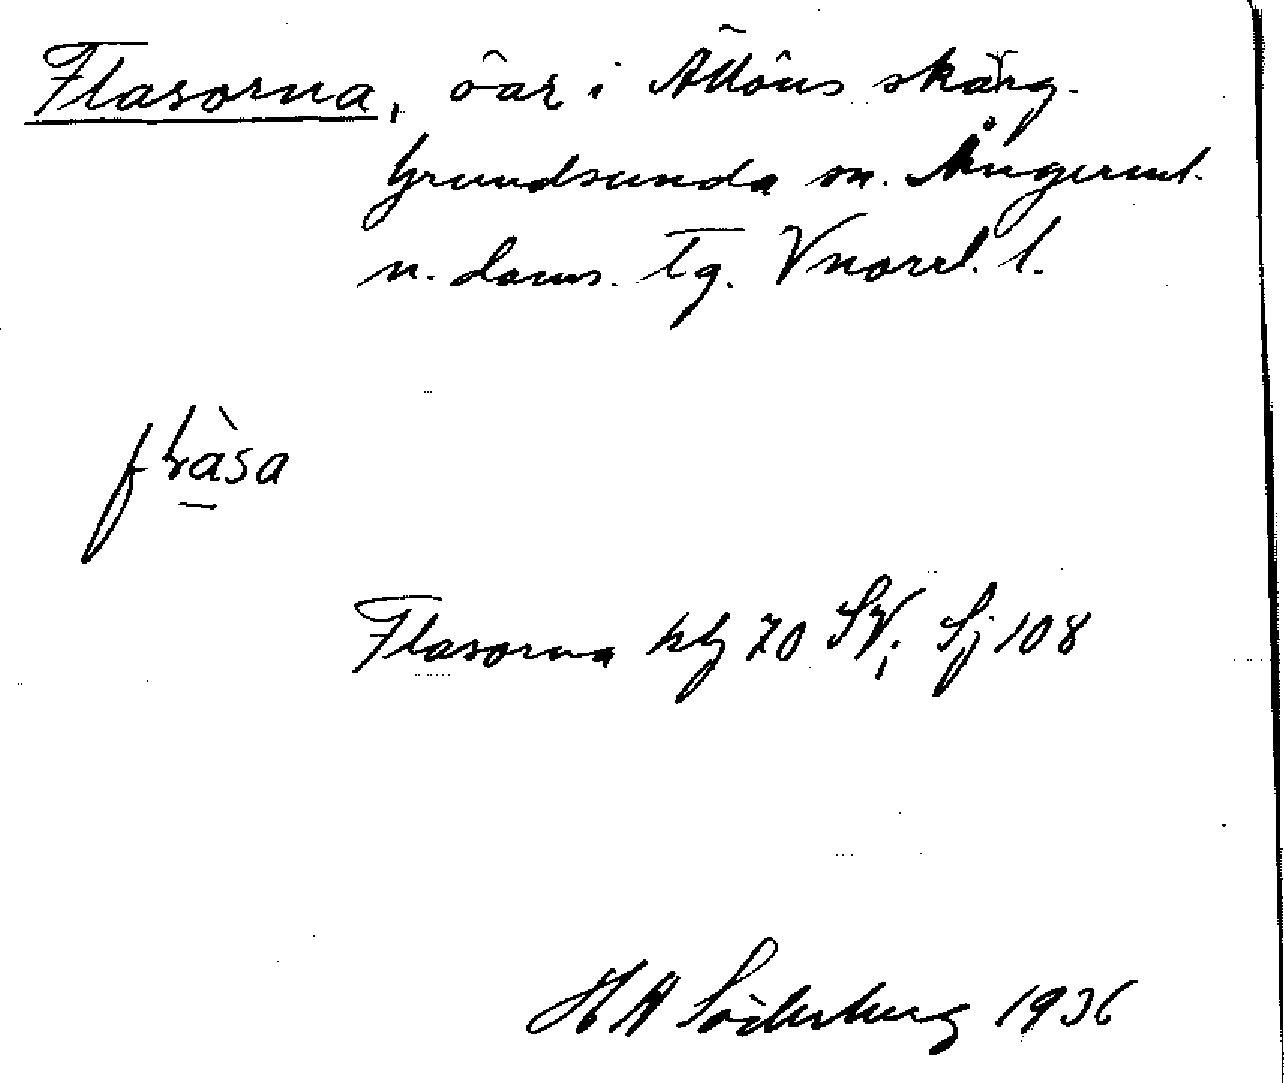 Flasorna, öar i Ällöns skärg.
Grundsunda sn. Ångerml.
n. doms. Tg. Vnorrl. l.
flàsa
Flasorna kbl 70 SV; Sj 108
H A Söderberg 1936